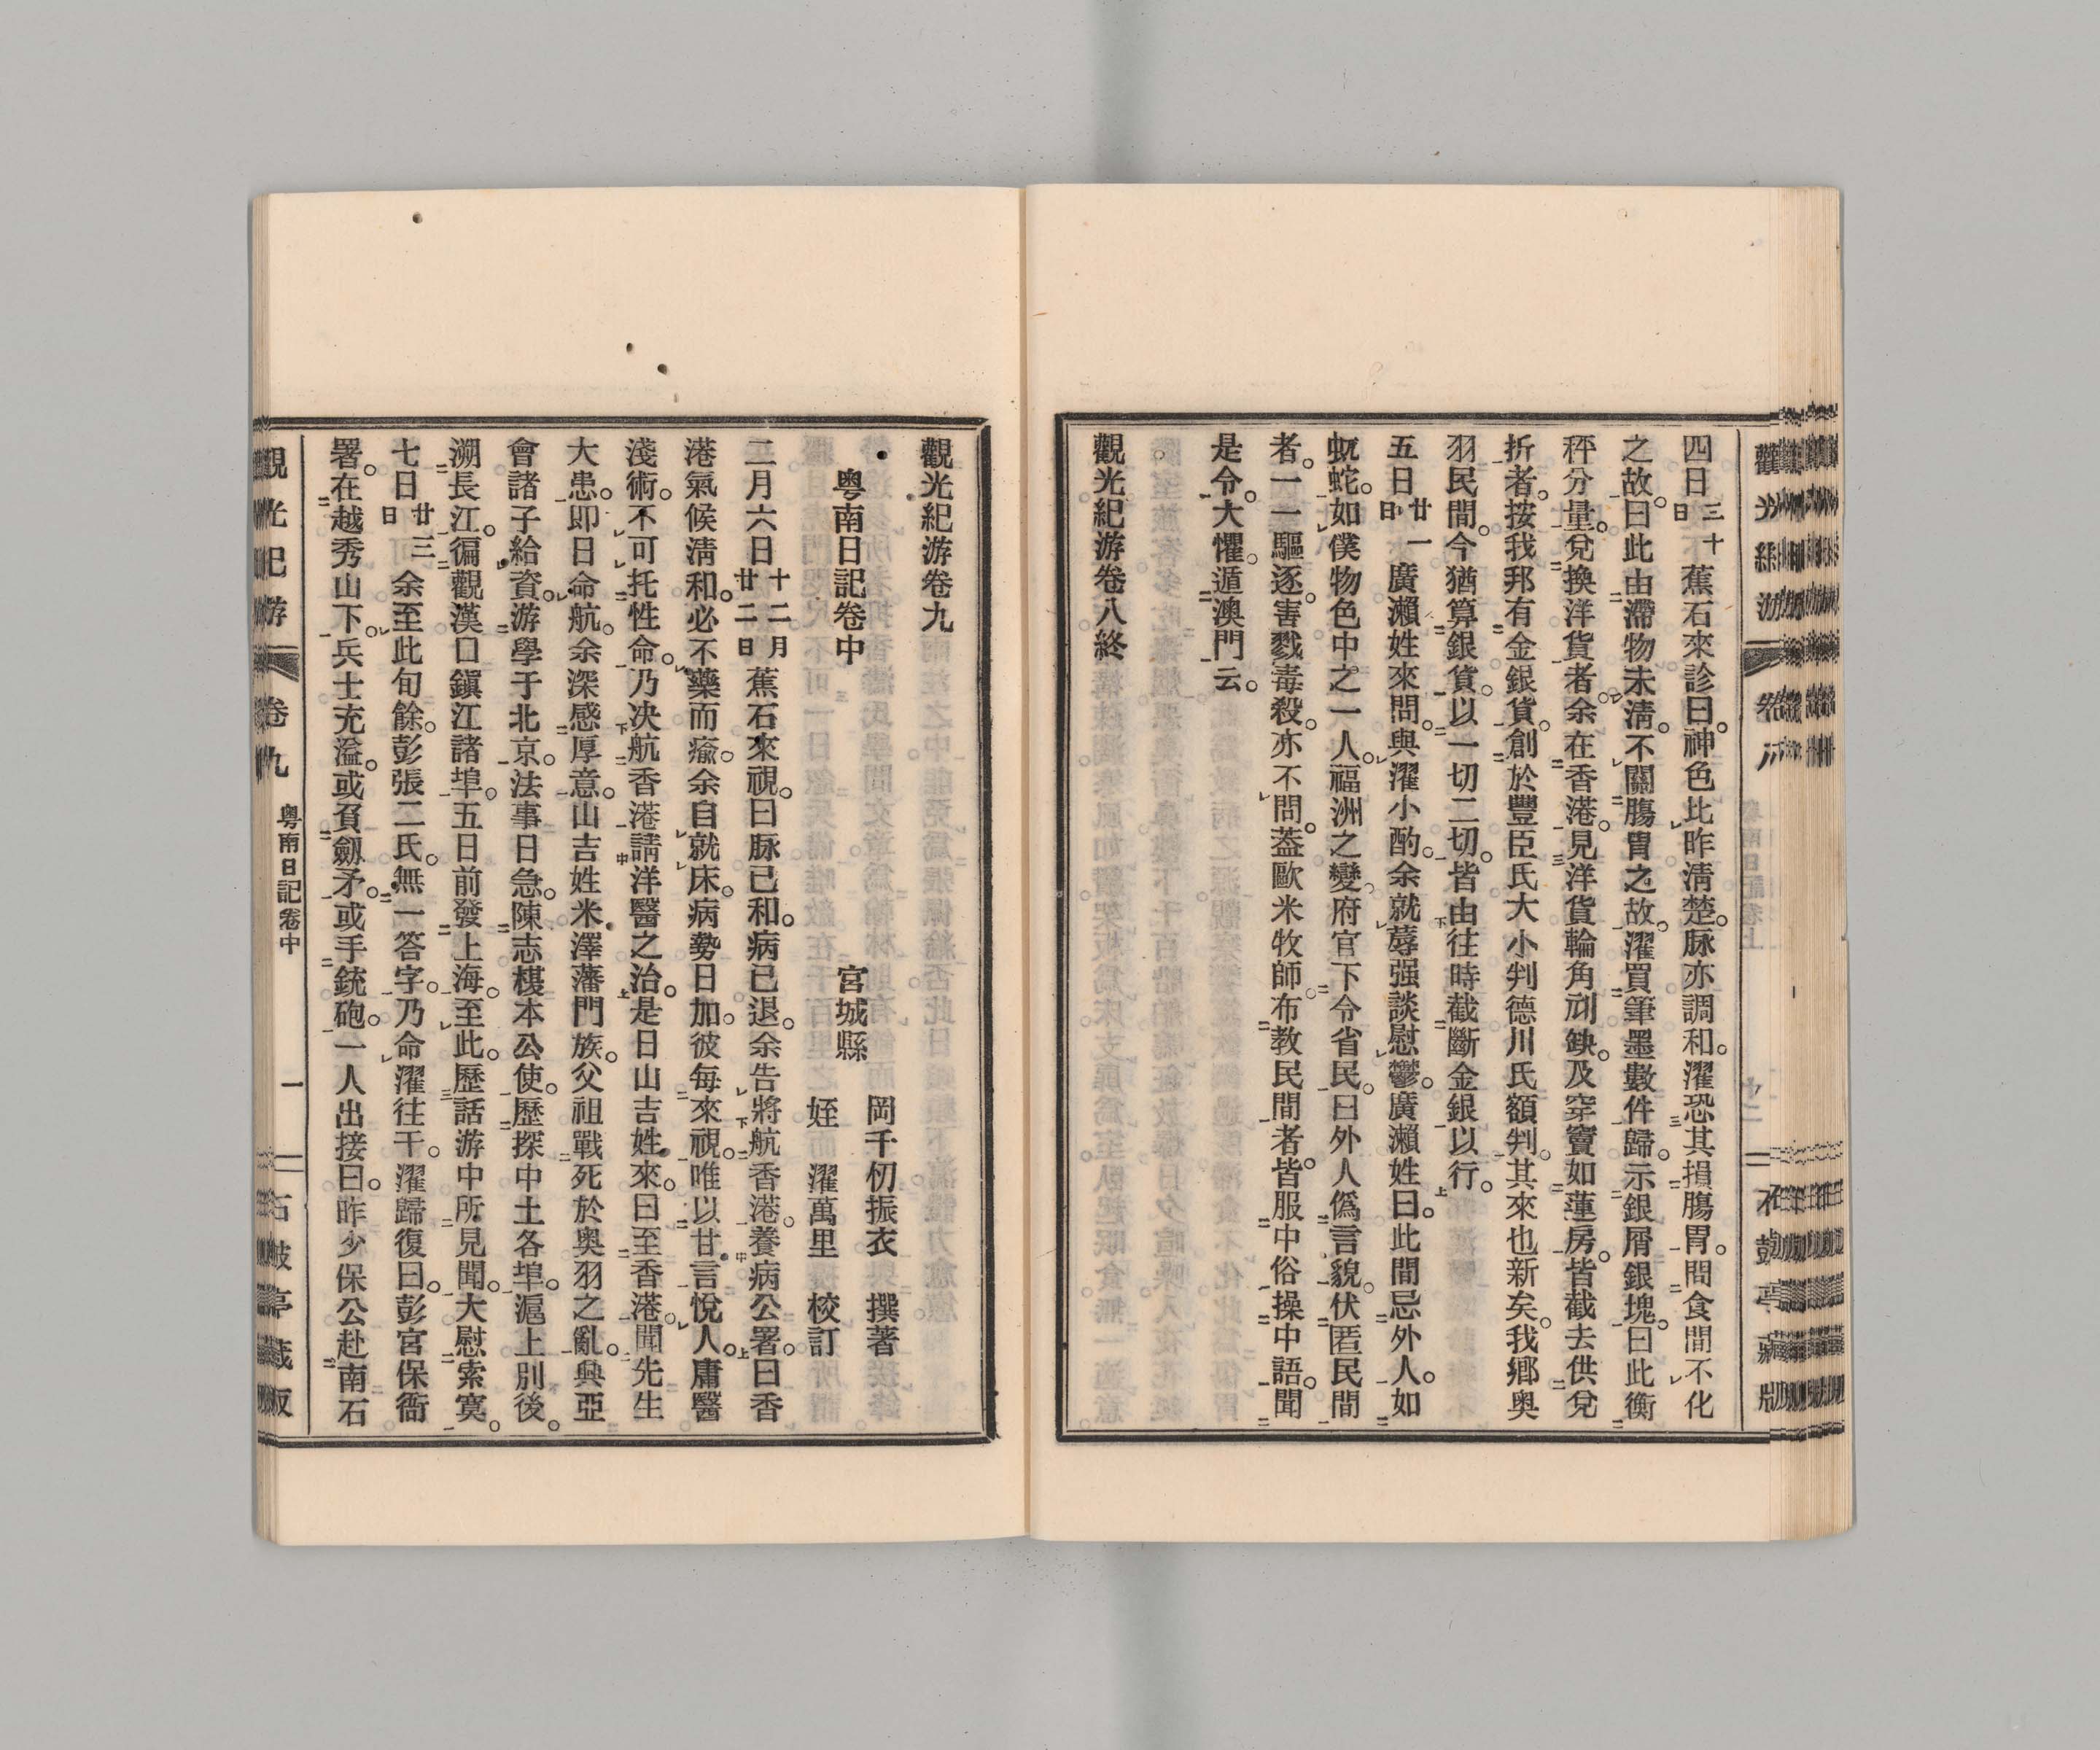 四日三十日蕉石來診曰。神色比昨淸楚。脉亦調和。濯恐其損膓胃。問食間不化
之故。曰此由滯物未淸。不關膓胃之故。濯買筆墨數件歸。示銀屑銀塊。曰此衡
秤分量。兌換洋貨者。余在香港。見洋貨輪角刓缺。及穿竇如蓮房。皆截去供兌
折者。按我邦有金銀貨。創於豐臣氏大小判德川氏額判。其來也新矣。我鄕奥
羽民間。今猶算銀貨。以一切二切。皆由往時截斷金銀以行。
五日廿一日廣瀨姓來問。與濯小酌。余就蓐强談慰鬱。廣瀨姓曰。此間忌外人。如
虺蛇。如僕物色中之一人。福洲之變。府官下令省民。曰外人僞言貌。伏匿民間
者。一一驅逐。害戮毒殺。亦不問。蓋歐米牧師布教民間者。皆服中俗操中語。聞
是令。大懼。遁澳門云。
觀光紀游卷八終
觀光紀游卷九
粤南日記卷中
宮城縣 岡千仞振衣 撰著
姪 濯萬里 校訂
二月六日十二月廿二日蕉石來視。曰脉已和。病已退。余告將航香港。養病公署。曰香
港氣候淸和。必不藥而瘉。余自就床。病勢日加。彼每來視。唯以甘言悅人。庸醫
淺術。不可托性命。乃決航香港。請洋醫之治。是日山吉姓來。曰至香港。聞先生
大患。即日命航。余深感厚意。山吉姓米澤藩門族。父祖戰死於奥羽之亂。興亞
會諸子給資。游學于北京。法事日急。陳志榎本公使。歷探中土各埠。滬上別後。
溯長江。徧觀漢口鎭江諸埠。五日前發上海。至此。歷話游中所見聞。大慰索寞。
七日廿三日余至此旬餘。彭張二氏。無一答字。乃命濯往干。濯歸復曰。彭宮保衙
署。在越秀山下。兵士充溢。或負劔矛。或手銃砲。一人出接曰。昨少保公赴南石
觀光紀游 卷九 粤南日記卷中 一 石鼓亭藏版